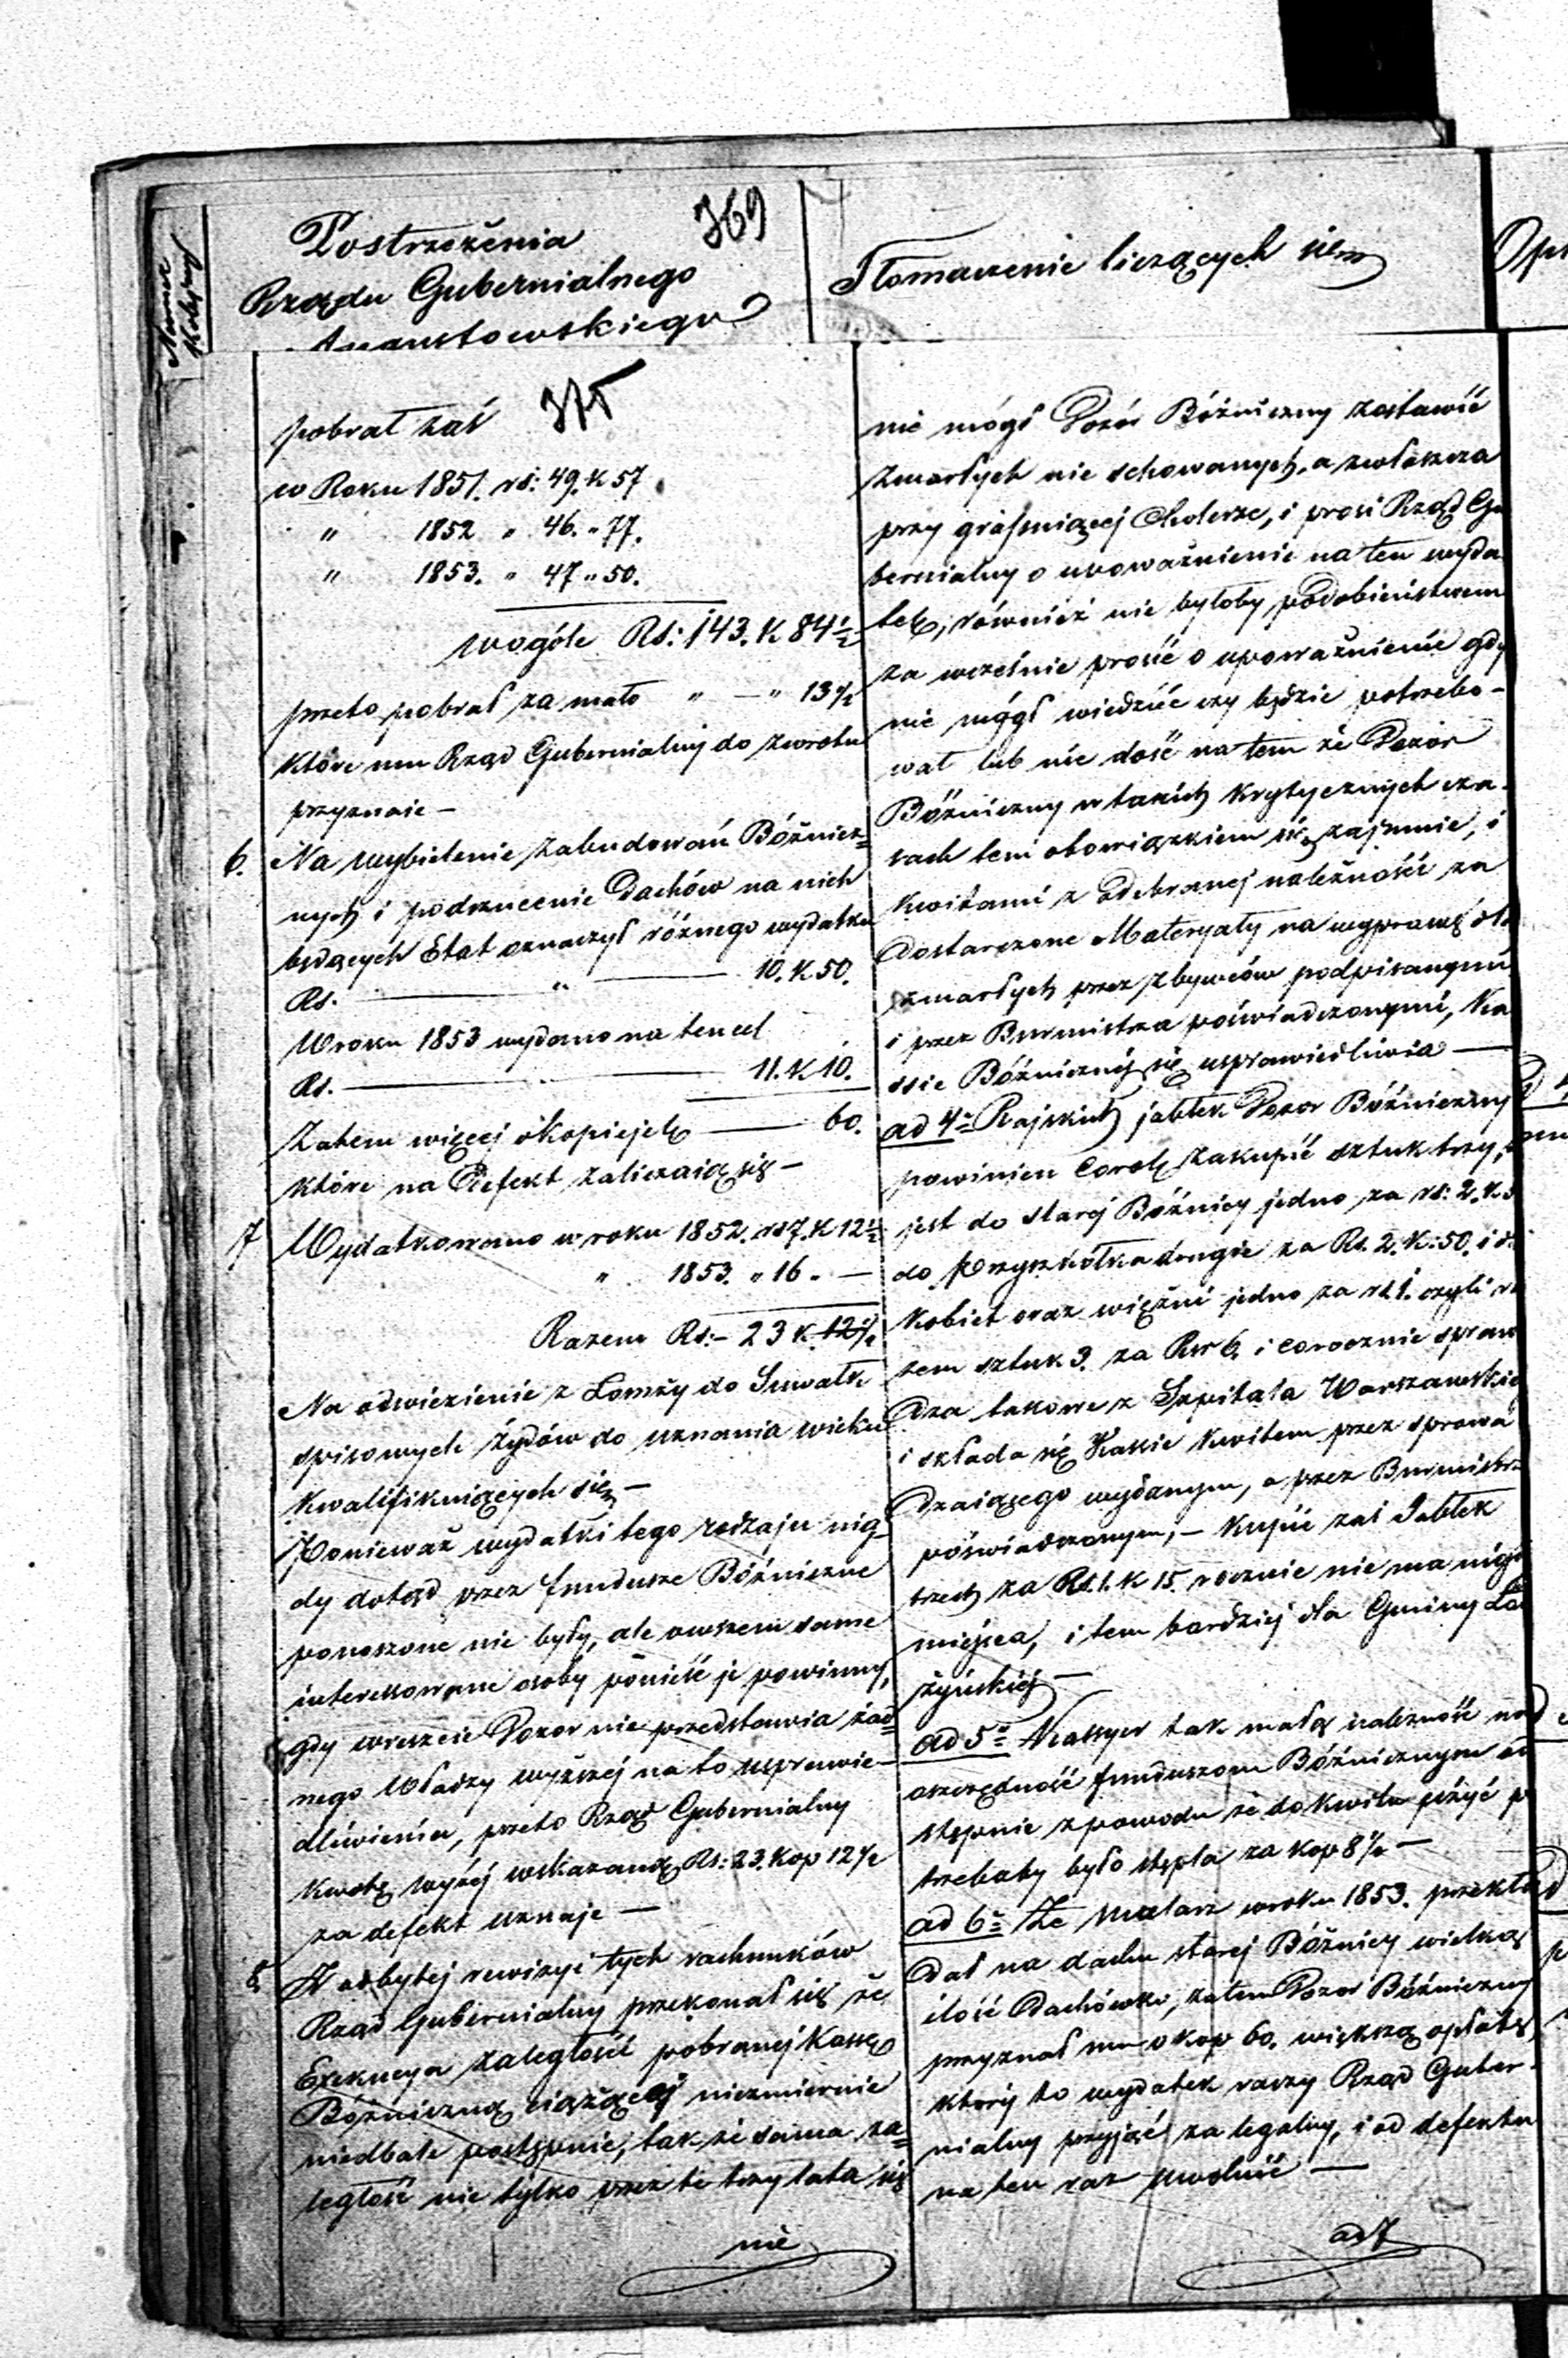 369
Numer
Kolejny
Postrzeżenia
Rządu Gubernialnego
Augustowskiego
375
pobrał zaś
w Roku 1851. rs: 49. k 57
" 1852 " 46. " 77.
" 1853. " 47 " 50.
wogóle Rs: 143. K 84½
przeto pobrał za mało " — " 13½
które mu Rząd Gubernialny do zwrotu
przyznaie —
6. Na wybielenie zabudowań Bóżnicz=
nych i podrzucenie Dachów na nich
będących Etat oznaczył różnego wydatku
Rs. — " — 10. K 50.
W roku 1853 wydano na ten cel
Rs. — 11. K 10.
Zatem więcej o kopiejek — 60.
które na Defekt zaliczaią się —
7 Wydatkowano w roku 1852. rs 7. K 12½
" 1853. " 16 " —
Razem Rs: – 23 K. 12½
Na odwiezienie z Łomży do Suwałk
spisowych żydów do uznania wieku
kwalifikuiących się —
Ponieważ wydatki tego rodzaju nig=
dy dotąd przez fundusze Bóżniczne
ponoszone nie były, ale owszem same
interesowane osoby ponieść je powinny,
gdy wreszcie Dozor nie przedstawia żad=
nego Władzy wyższej na to usprawie=
dliwienia, przeto Rząd Gubernialny
kwotę wyżej wskazaną Rs: 23. Kop 12½
za defekt uznaje —
8 Z odbytej rewizyi tych rachunków
Rząd Gubernialny przekonał się że
Exekucya zaległość pobranej Kassę
Bóżniczną ciążącej niezmiernie
niedbale postępuie, tak że sama za=
ległość nie tylko przez te trzy lata się
nie
Tłomaczenie liczących się
nie mógł Dozór Bóżniczny zostawić
zmarłych nie schowanych, a zwłaszcza
przy grassuiącej Cholerze, i prosi Rząd Gu
bernialny o upoważnienie na ten wyda
tek, również nie byłoby podobieństwem
za wcześnie prosić o upoważnienie gdy
nie mógł wiedzieć czy będzie potrzebo-
wał lub nie dość na tem że Dozór
Bóżniczny w takich krytycznych cza-
sach tem obowiązkiem się zajmuie, i
kwitami z odebranej należności za
dostarczone Materyały na wyprawę dla
zmarłych przez zbywców podpisanymi
i przez Burmistrza poświadczonymi, Ka
ssie Bóżnicznej się usprawiedliwia —
ad 4= Rajskich jabłek Dozor Bóżniczny
powinien corok zakupić sztuk trzy,
jest do starej Bóżnicy jedno za rs: 2. k 5
do Przyszkółka drugie za Rs. 2. K: 50. i d
kobiet oraz więźni jedno za rs 1. czyli r
tem sztuk 3. za Rsr 6. i corocznie spraw
dza takowe z Szpitala Warszawskie
i składa się Kassie kwitem przez sprowa
dzaiącego wydanym, a przez Burmistrz
poświadczonym, — kupić zaś Jabłek
trzech za Rs. 1. K 15. rocznie nie ma nigd
miejsca, i tem bardziej dla Gminy Ło
żyńskiej —
ad 5= Kassyer tak małą należność na
oszczędność funduszom Bóżnicznym od
stępuie z powodu że do kwitu użyć p
trzebaby było stępla za kop 8½ —
ad 6= Że Mularz w roku 1853. przekła
dał na dachu starej Bóżnicy wielką
ilość Dachówki, zatem Dozor Bóżniczny
przyznał mu o kop 60. większą opłatę,
który to wydatek raczy Rząd Guber-
nialny przyjąć za legalny, i od defektu
na ten raz uwolnić —
ad 7